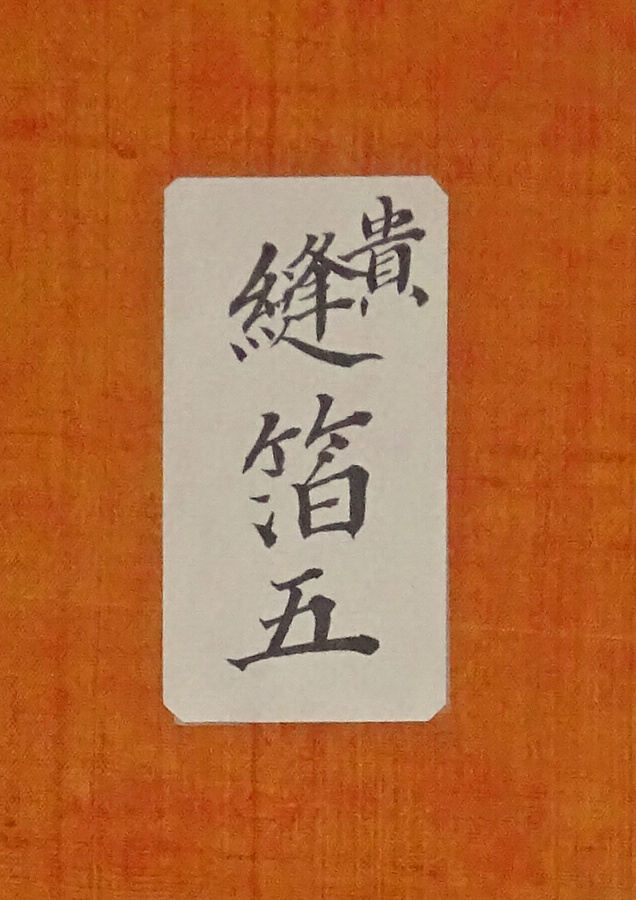 貴
縫箔五